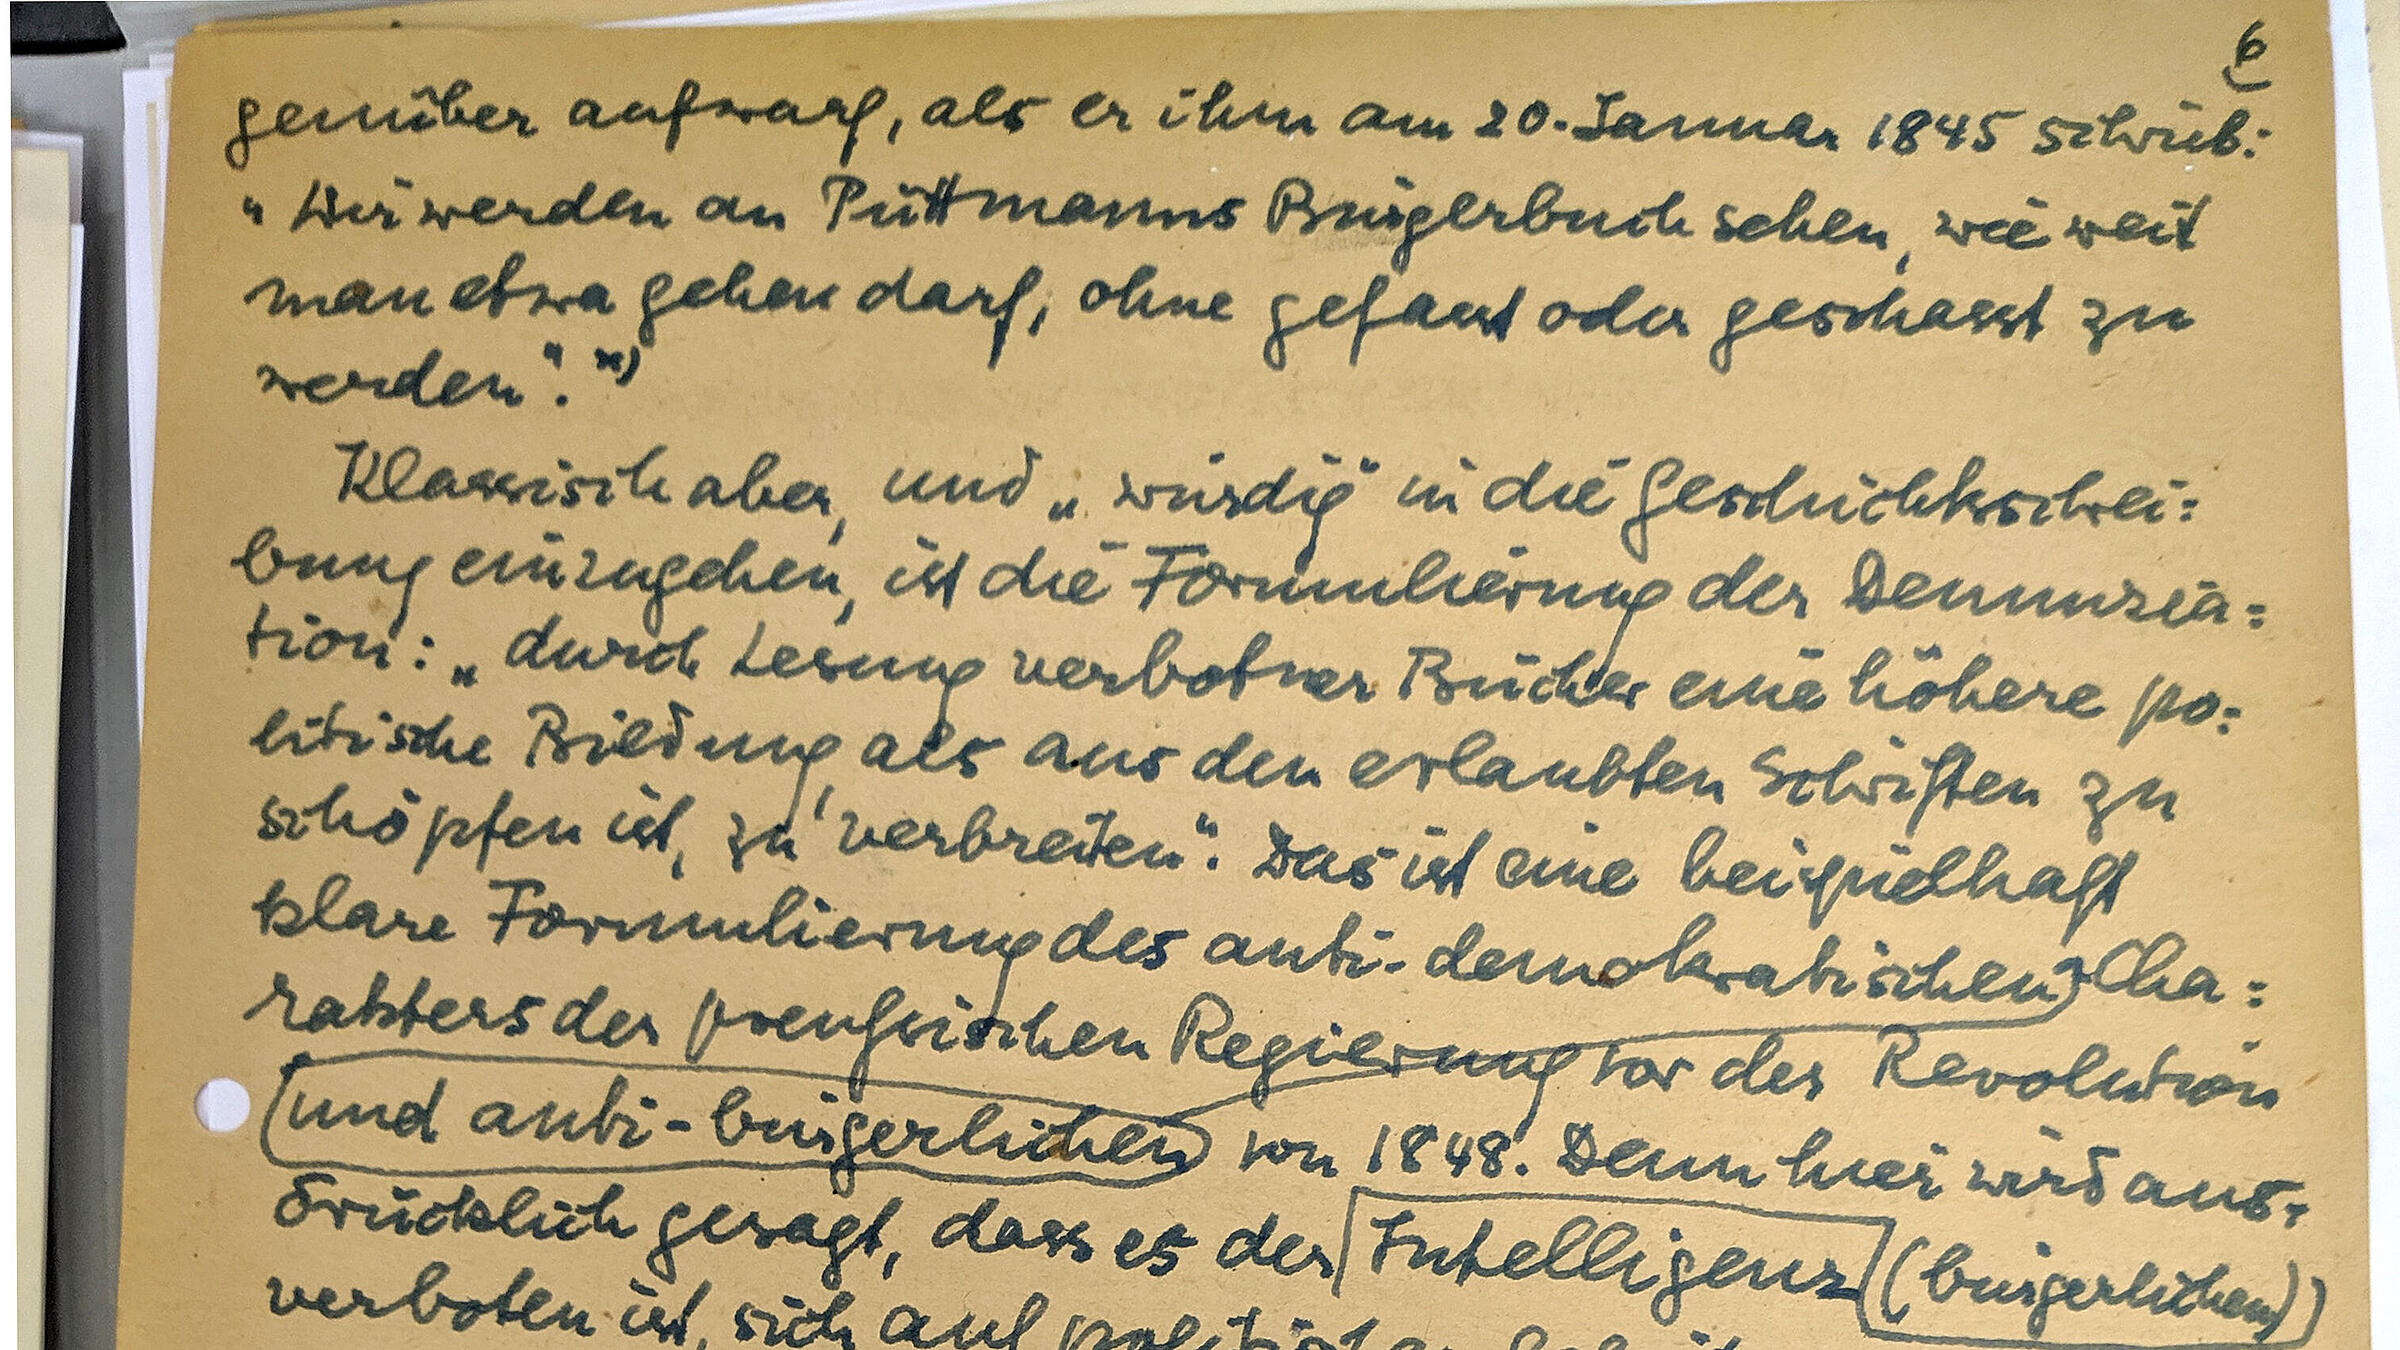 6
genüber aufwarf, als er ihm am 20. Januar 1845 schrieb:
"Wir werden an Püttmanns Bürgerbuch sehen, wie weit
man etwa gehen darf, ohne gefasst oder geschasst zu
werden". x)
Klassisch aber, und „würdig" in die Geschichtsschrei=
bung einzugehen, ist die Formulierung der Denunzia=
tion: „durch Lesung verbotner Bücher eine höhere po=
litische Bildung, als aus den erlaubten Schriften zu
schöpfen ist, zu verbreiten". Das ist eine beispielhaft
klare Formulierung des anti-demokratischen Cha=
rakters der preußsischen Regierung vor der Revolution
(und anti-bürgerlichen) von 1848. Denn hier wird aus=
drücklich gesagt, dass es der Intelligenz (bürgerlichen)
verboten ist, sich auf